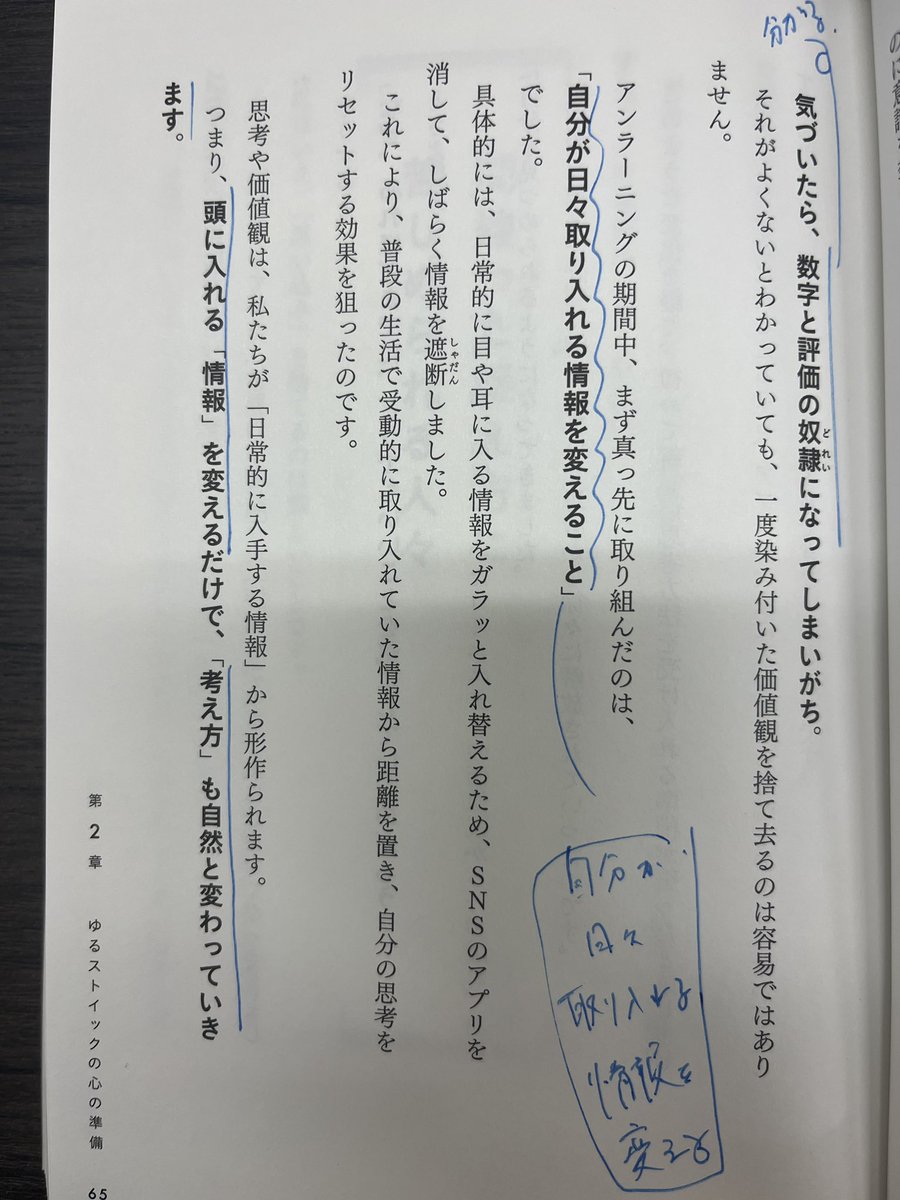 分かる。
気づいたら、数字と評価の奴隷になってしまいがち。
どれい
それがよくないとわかっていても、一度染み付いた価値観を捨て去るのは容易ではあり
ません。
アンラーニングの期間中、まず真っ先に取り組んだのは、
「自分が日々取り入れる情報を変えること」
でした。
具体的には、日常的に目や耳に入る情報をガラッと入れ替えるため、SNSのアプリを
消して、しばらく情報を遮断しました。
しゃだん
これにより、普段の生活で受動的に取り入れていた情報から距離を置き、自分の思考を
リセットする効果を狙ったのです。
思考や価値観は、私たちが「日常的に入手する情報」から形作られます。
つまり、頭に入れる「情報」を変えるだけで、「考え方」も自然と変わっていき
ます。
自分が
日々
取り入れる
情報を
変える
第2章 ゆるストイックの心の準備
65